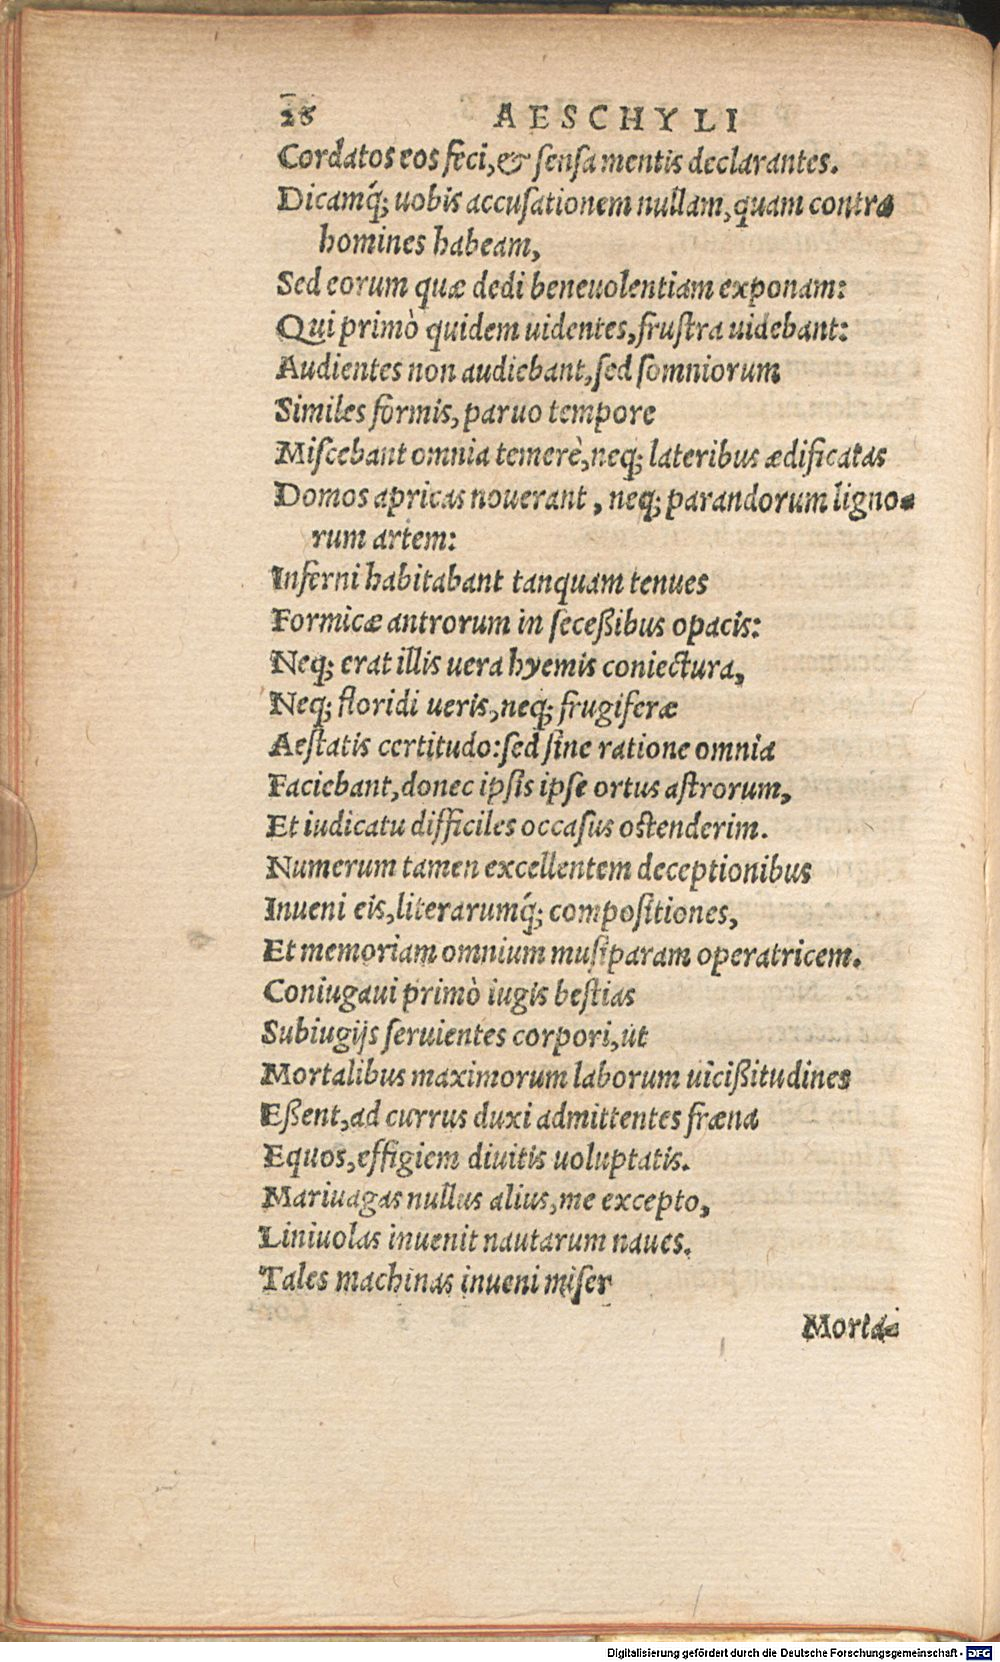 28 AESCHYLI
Cordatos eos feci,& ſenſa mentis declarantes.
Dicamq́; uobis accuſationem nullam,quam contra
homines habeam,
Sed eorum quæ dedi beneuolentiam exponam:
Qui primò quidem uidentes,fruſtra uidebant:
Audientes non audiebant,ſed ſomniorum
Similes formis,paruo tempore
Miſcebant omnia temerè,neq; lateribus ædificatas
Domos apricas nouerant, neq; parandorum ligno-
rum artem:
Inferni habitabant tanquam tenues
Formicæ antrorum in ſeceßibus opacis:
Neq; erat illis uera hyemis coniectura,
Neq; floridi ueris,neq; frugiferæ
Aeſtatis certitudo:ſed ſine ratione omnia
Faciebant,donec ipſis ipſe ortus aſtrorum,
Et iudicatu difficiles occaſus oſtenderim.
Numerum tamen excellentem deceptionibus
Inueni eis,literarumq́; compoſitiones,
Et memoriam omnium muſiparam operatricem.
Coniugaui primò iugis beſtias
Subiugijs ſeruientes corpori,ut
Mortalibus maximorum laborum uicißitudines
Eßent,ad currus duxi admittentes fræna
Equos,effigiem diuitis uoluptatis.
Mariuagas nullus alius,me excepto,
Liniuolas inuenit nautarum naues.
Tales machinas inueni miſer
Morta-
Digitalisierung gefördert durch die Deutsche Forschungsgemeinschaft - DFG